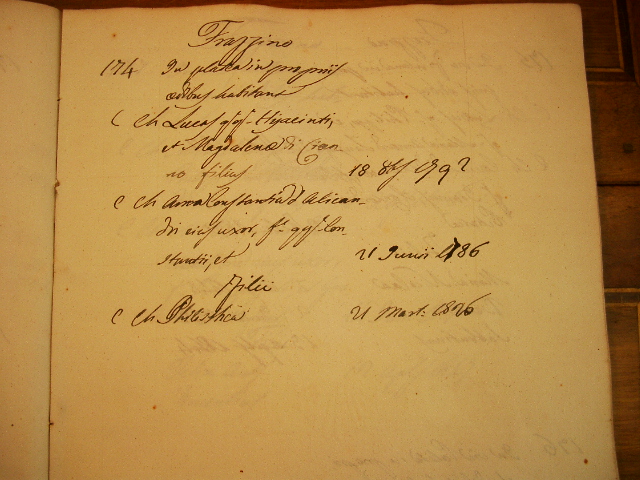 Frazzino
174 In platea in propriis
ædibus habitant
C Ch Lucas qq. Hyacinti,
et Magdalenæ di Cian-
no filius 18 8bris 1792
C Ch Anna Constantia d'Alican-
dri eius uxor, f.ª qq. Con-
stantii, et 21 Junii 1786
Filii
C Ch 21 Mart: 1826